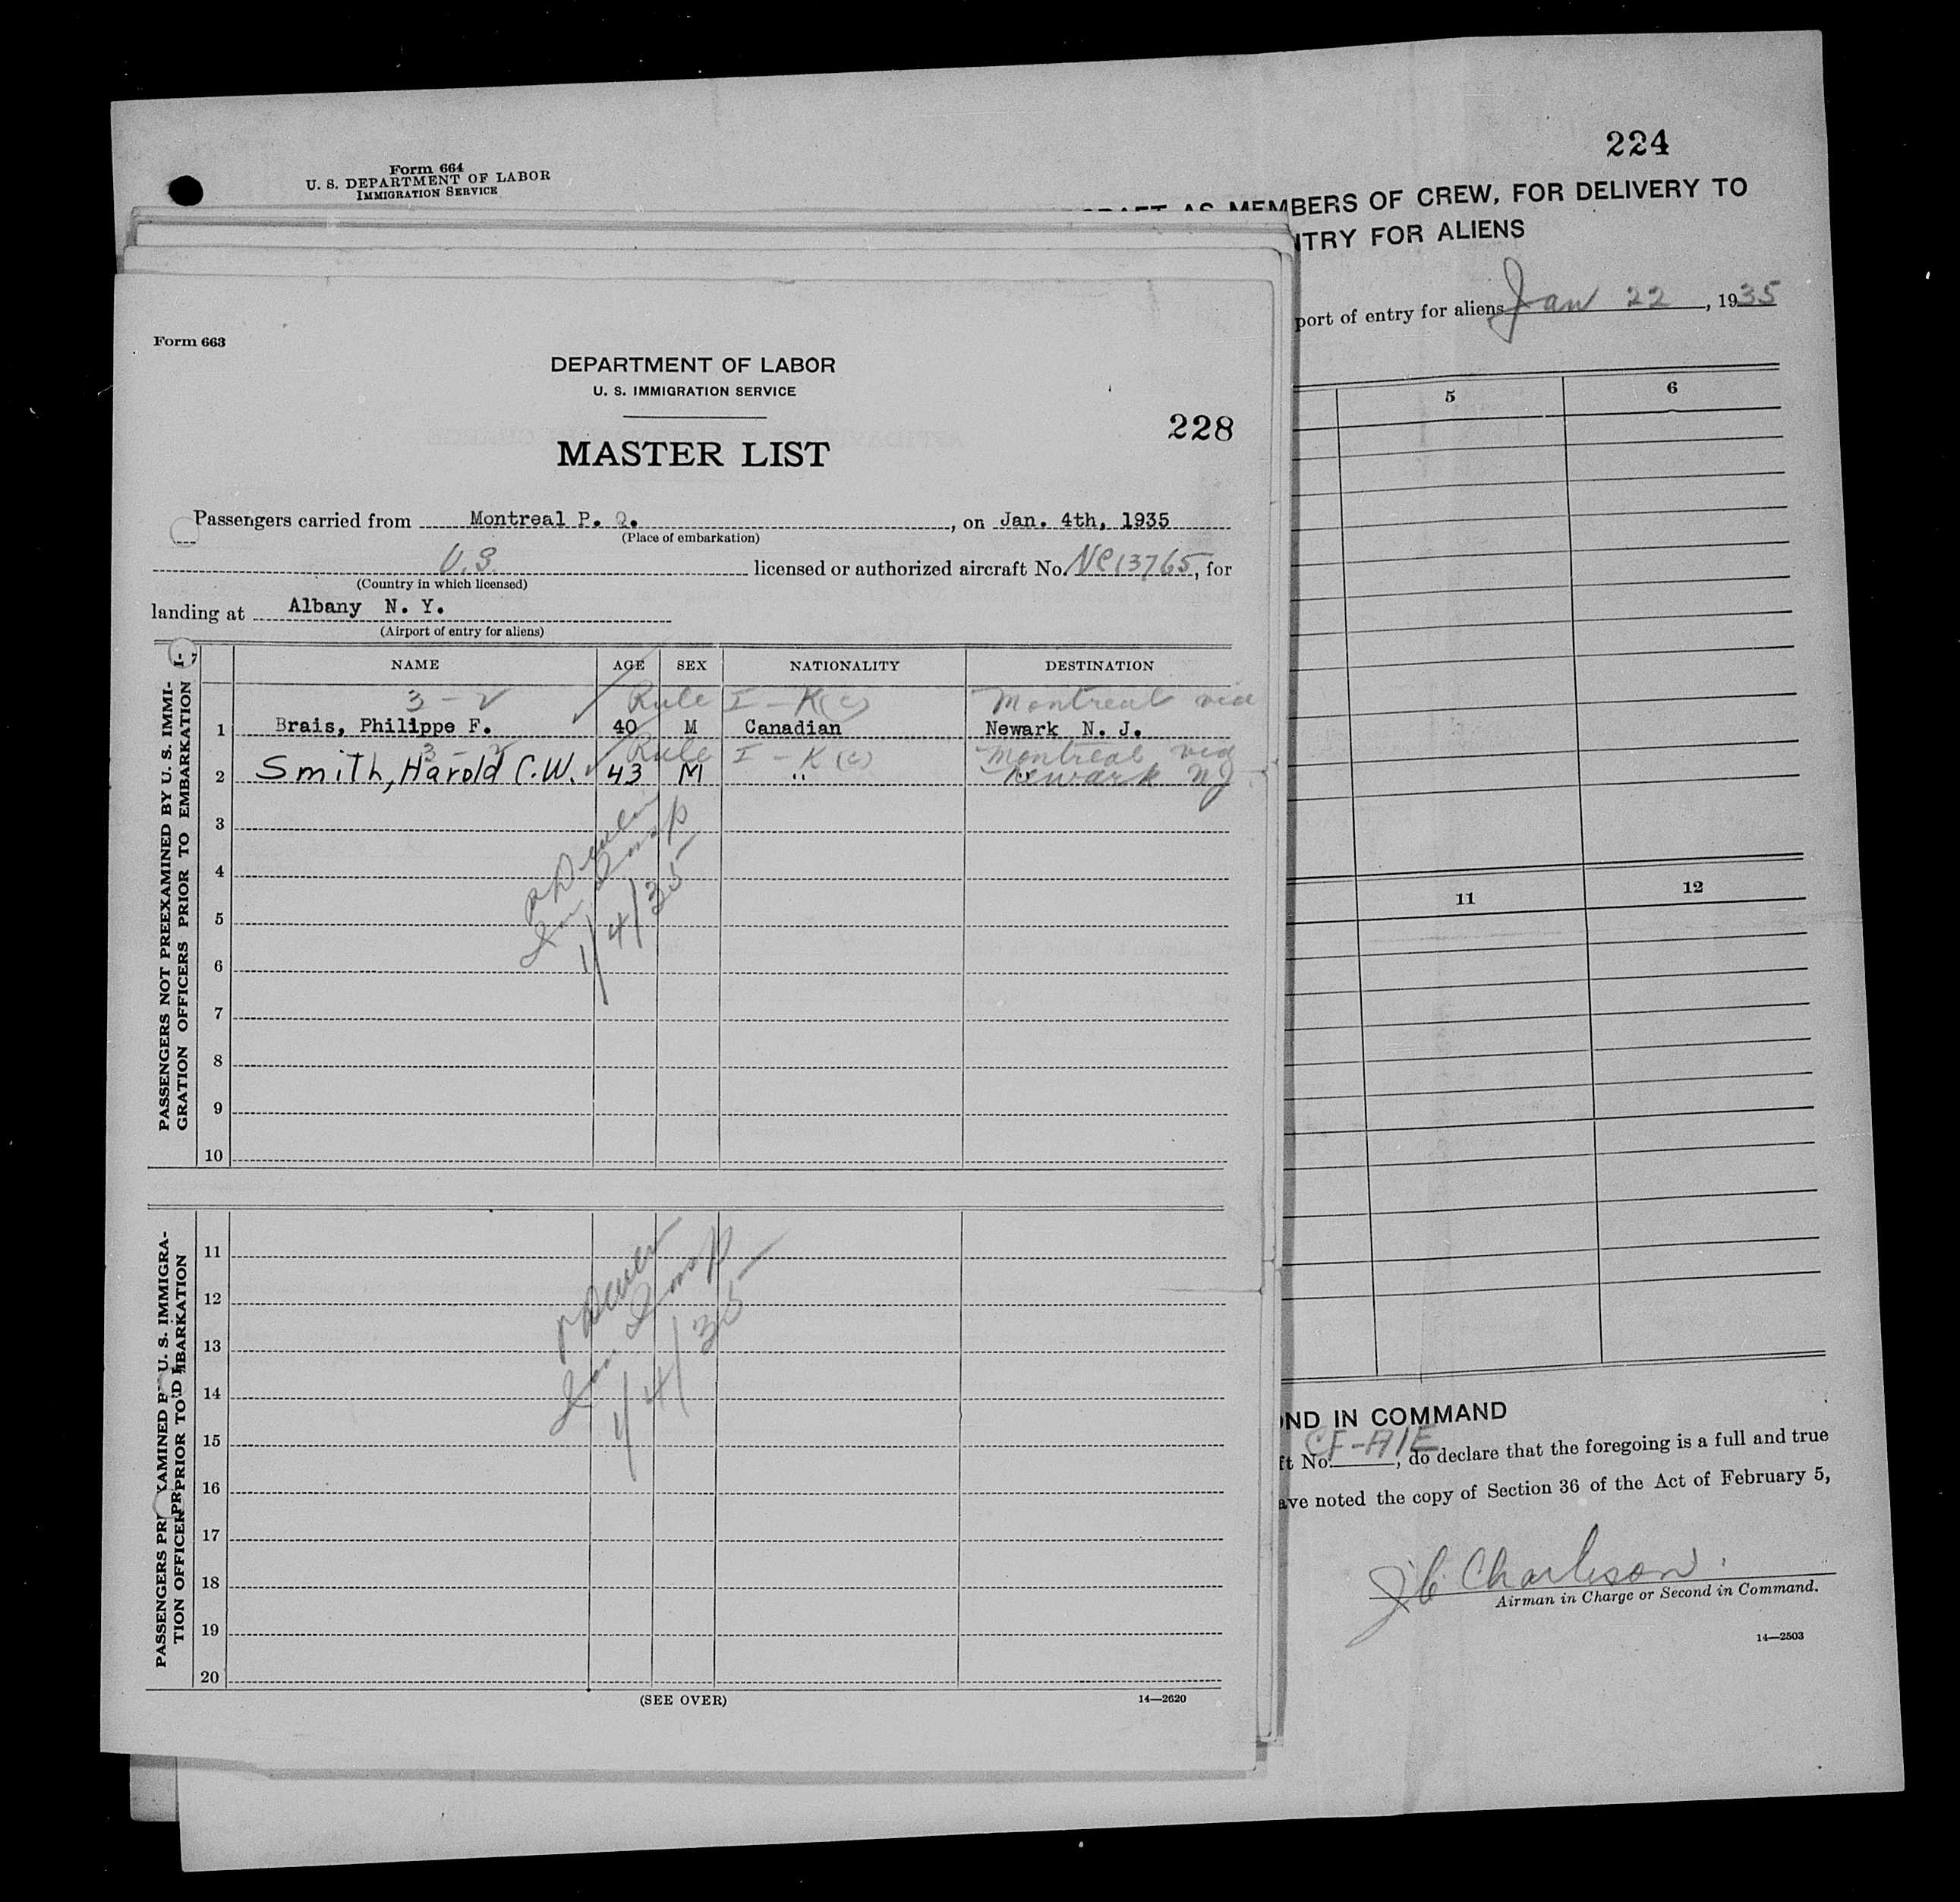 224
Form 664
U. S. DEPARTMENT OF LABOR
IMMIGRATION SERVICE
AS MEMBERS OF CREW, FOR DELIVERY TO
NTRY FOR ALIENS
port of entry for aliens Jan 22, 1935
5 6
11 12
ND IN COMMAND
ft No. CF-AIE, do declare that the foregoing is a full and true
ave noted the copy of Section 36 of the Act of February 5,
Airman in Charge or Second in Command.
14—2503
Form 663
DEPARTMENT OF LABOR
U. S. IMMIGRATION SERVICE
228
MASTER LIST
Passengers carried from Montreal P. Q., on Jan. 4th, 1935
(Place of embarkation)
U.S. licensed or authorized aircraft No. NC13765, for
(Country in which licensed)
landing at Albany N. Y.
(Airport of entry for aliens)
NAME AGE SEX NATIONALITY DESTINATION
3-2 Rule I-K(c) Montreal via
1 Brais, Philippe F. 40 M Canadian Newark N. J.
3-2 Rule I-K(c) Montreal via
2 Smith, Harold C.W. 43 M " Newark NJ
3
4
5
6
7
8
9
10
Imm Insp
1/4/35
PASSENGERS NOT PREEXAMINED BY U. S. IMMI-
GRATION OFFICERS PRIOR TO EMBARKATION
11
12
13
14
15
16
17
18
19
20
Imm Insp
1/4/35
PASSENGERS PR XAMINED U. S. IMMIGRA-
TION OFFICER PRIOR TO BARKATION
(SEE OVER)
14—2620